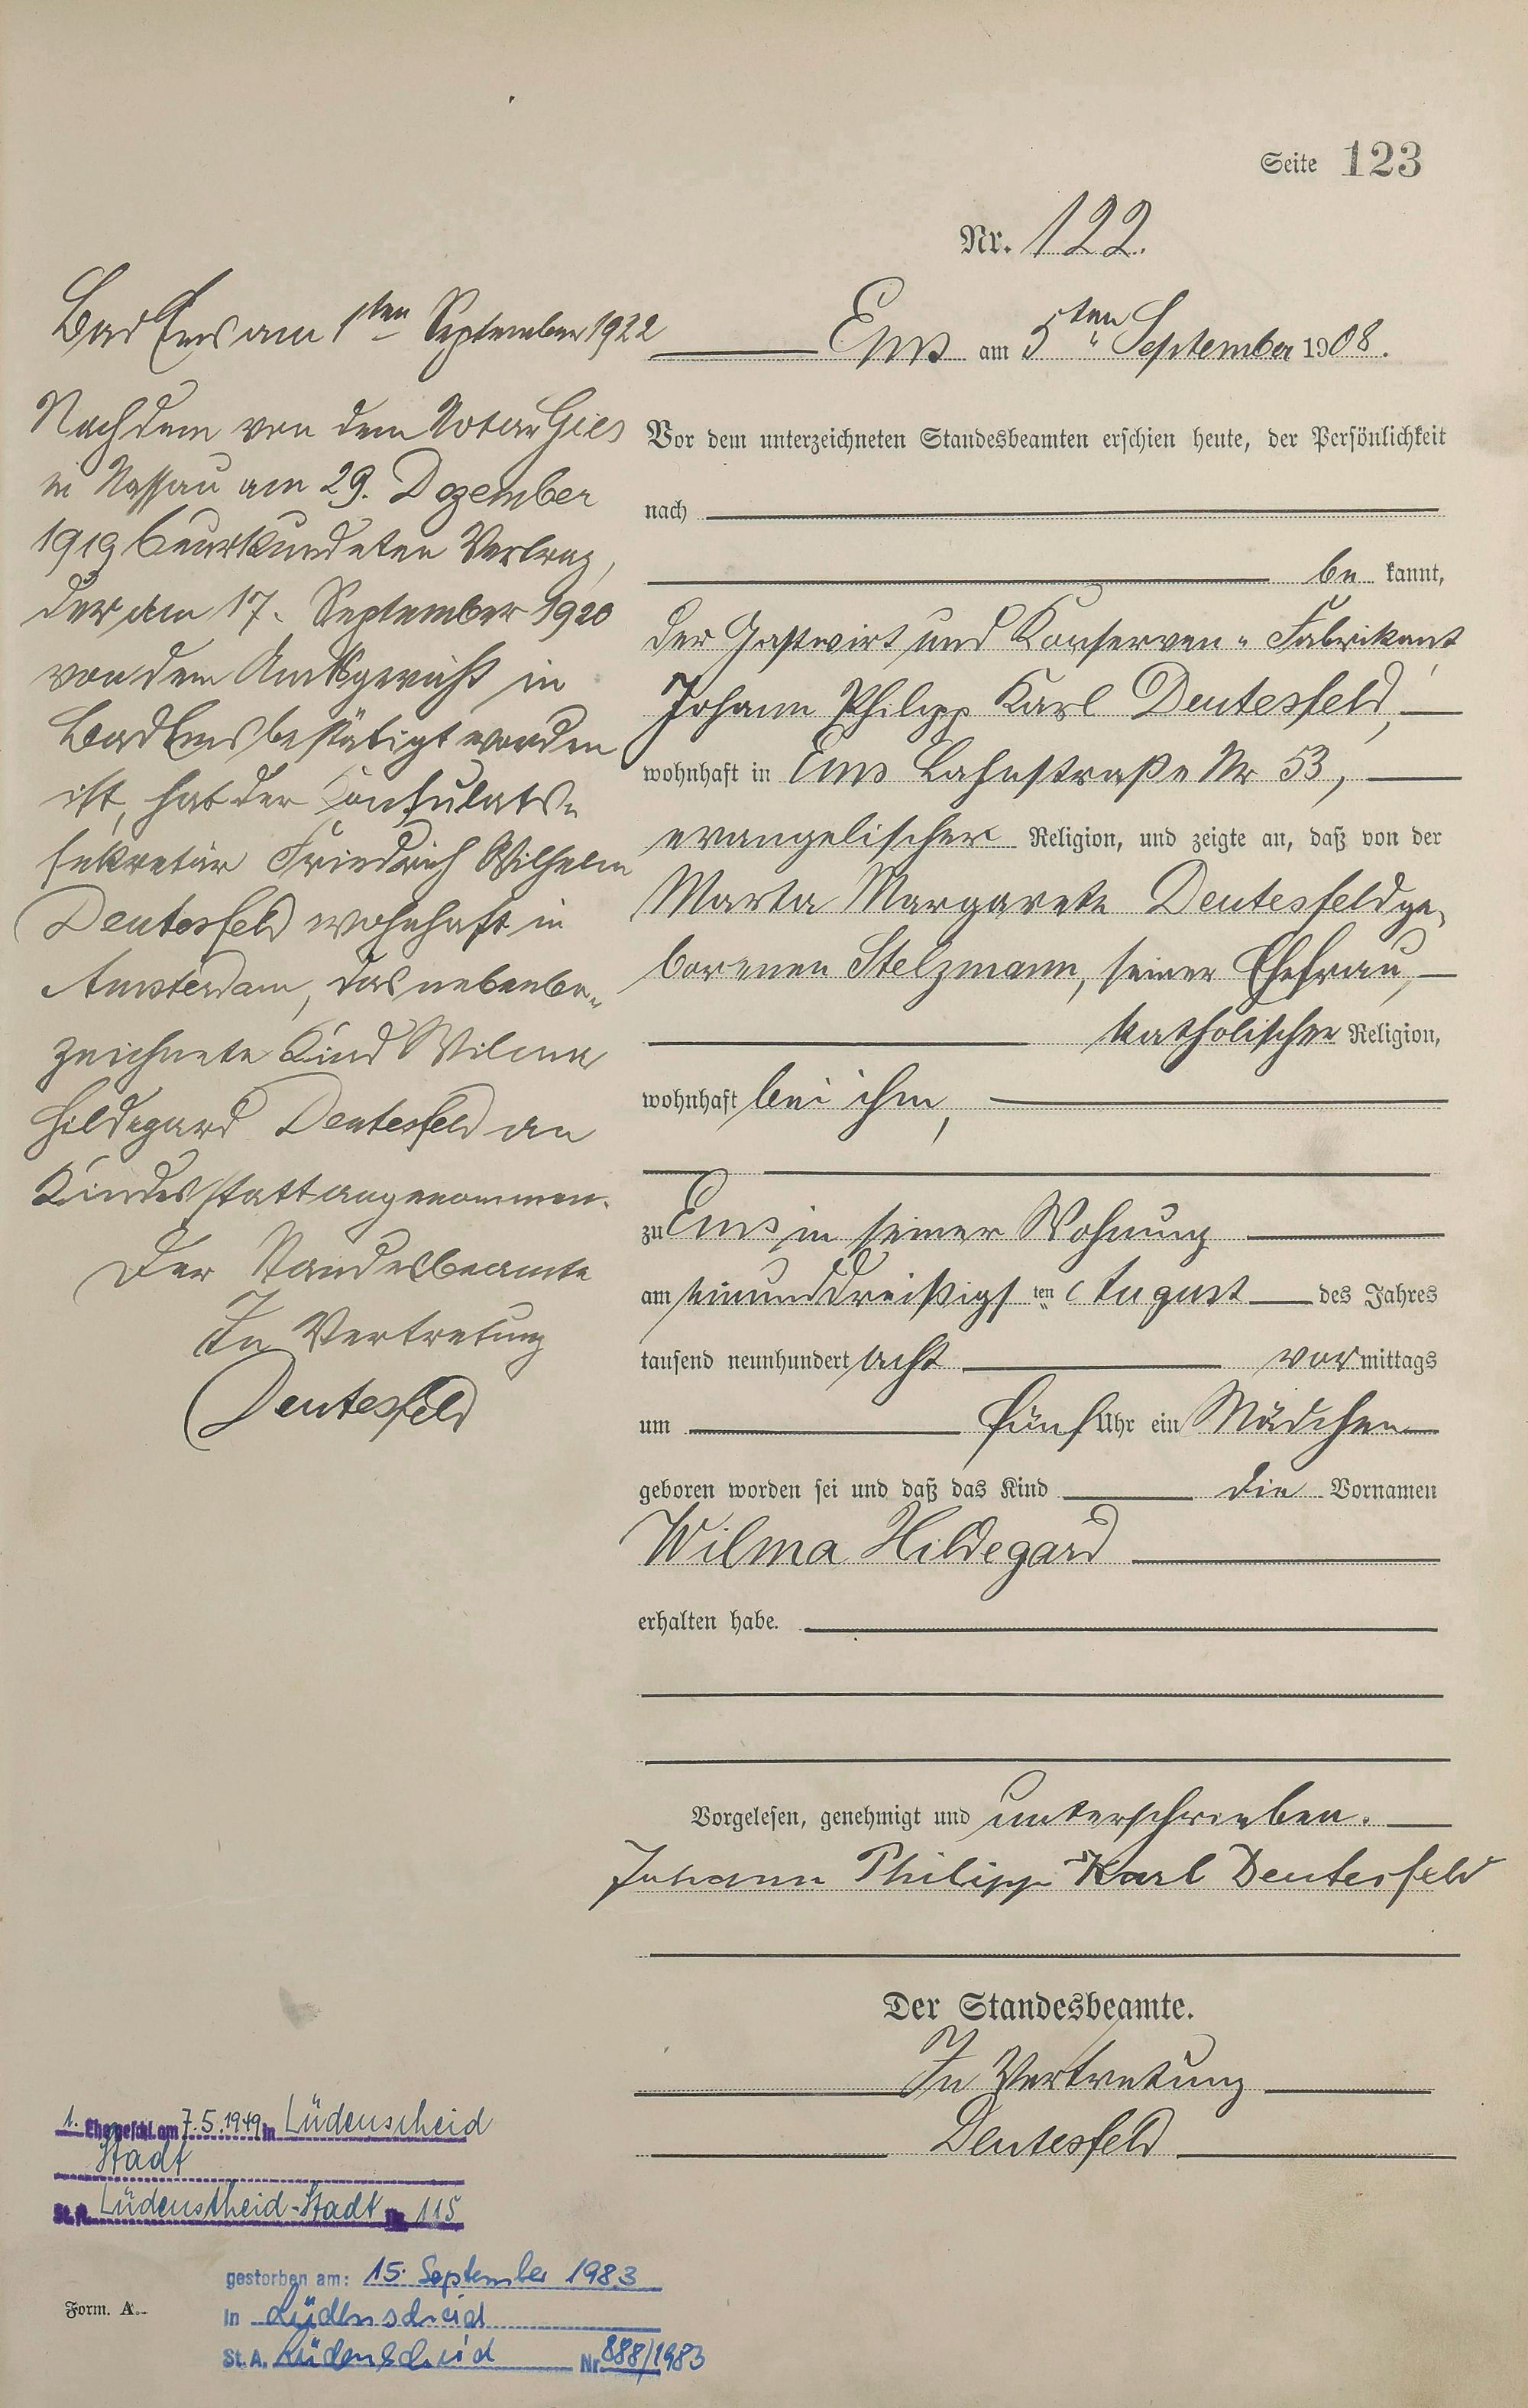 Seite 123
Nr. 122.
Ems am 5ten September 1908.
Vor dem unterzeichneten Standesbeamten erschien heute, der Persönlichkeit
nach
be kannt,
der Gastwirt und Konserven-Fabrikant
Johann Philipp Karl Deutesfeld,
wohnhaft in Ems Lahnstraße Nr 53,
evangelischer Religion, und zeigte an, daß von der
Marta Margarete Deutesfeld ge-
borenen Stelzmann, seiner Ehefrau,
katholischer Religion,
wohnhaft bei ihm,
zu Ems in seiner Wohnung
am einunddreißigsten August des Jahres
tausend neunhundert acht vormittags
um fünf Uhr ein Mädchen
geboren worden sei und daß das Kind die Vornamen
Wilma Hildegard
erhalten habe.
Vorgelesen, genehmigt und unterschrieben.
Johann Philipp Karl Deutesfeld
Der Standesbeamte.
In Vertretung
Deutesfeld
Bad Ems am 1ten September 1922
Nachdem von dem Notar Gies
in Nassau am 29. Dezember
1919 beurkundeten Vertrag,
der am 17. September 1920
von dem Amtsgericht in
Bad Ems bestätigt worden
ist, hat der Konsulats-
sekretär Friedrich Wilhelm
Deutesfeld wohnhaft in
Amsterdam, das nebenbe-
zeichnete Kind Wilma
Hildegard Deutesfeld an
Kindesstatt angenommen.
Der Standesbeamte
In Vertretung
Deutesfeld
1. Eheschl. am 7.5.1949 in Lüdenscheid
Stadt
St.A. Lüdenscheid-Stadt Nr. 115
gestorben am: 15. September 1983
in Lüdenscheid
St.A. Lüdenscheid Nr. 888/1983
Form. A.